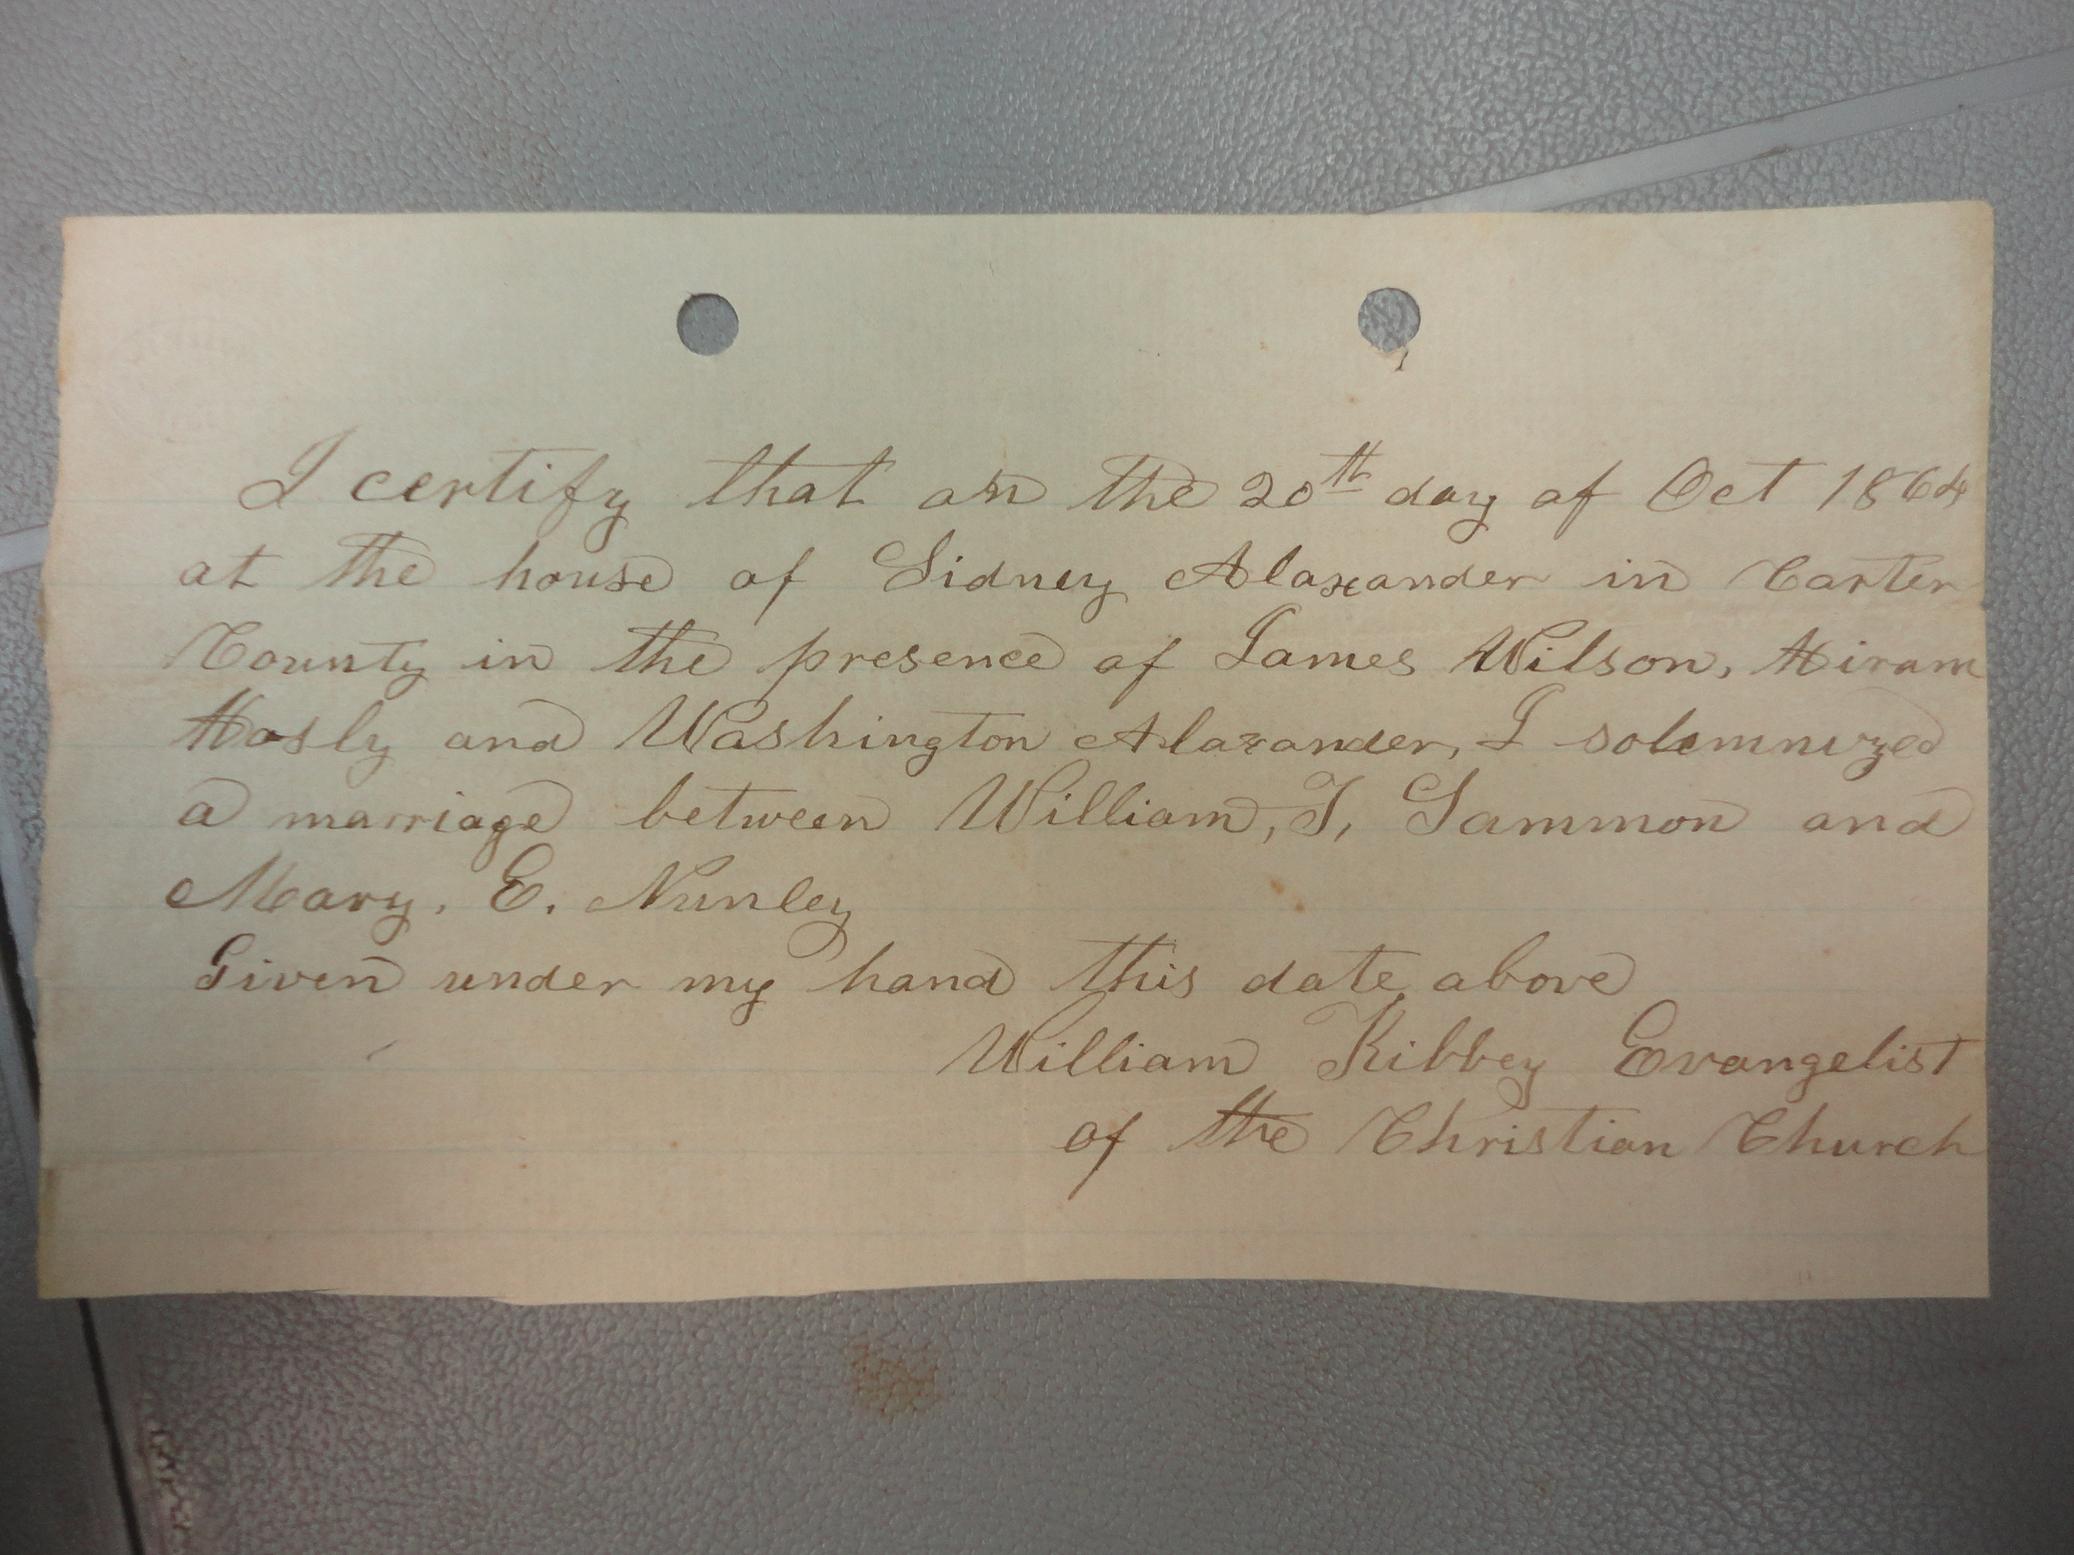 I certify that on the 20th day of Oct 1864
at the house of Sidney Alaxander in Carter
County in the presence of James Wilson, Hiram
Hasly and Washington Alaxander, I solemnized
a marriage between William, T, Sammon and
Mary. E. Nunley
Given under my hand this date above
William Kibbey Evangelist
of the Christian Church